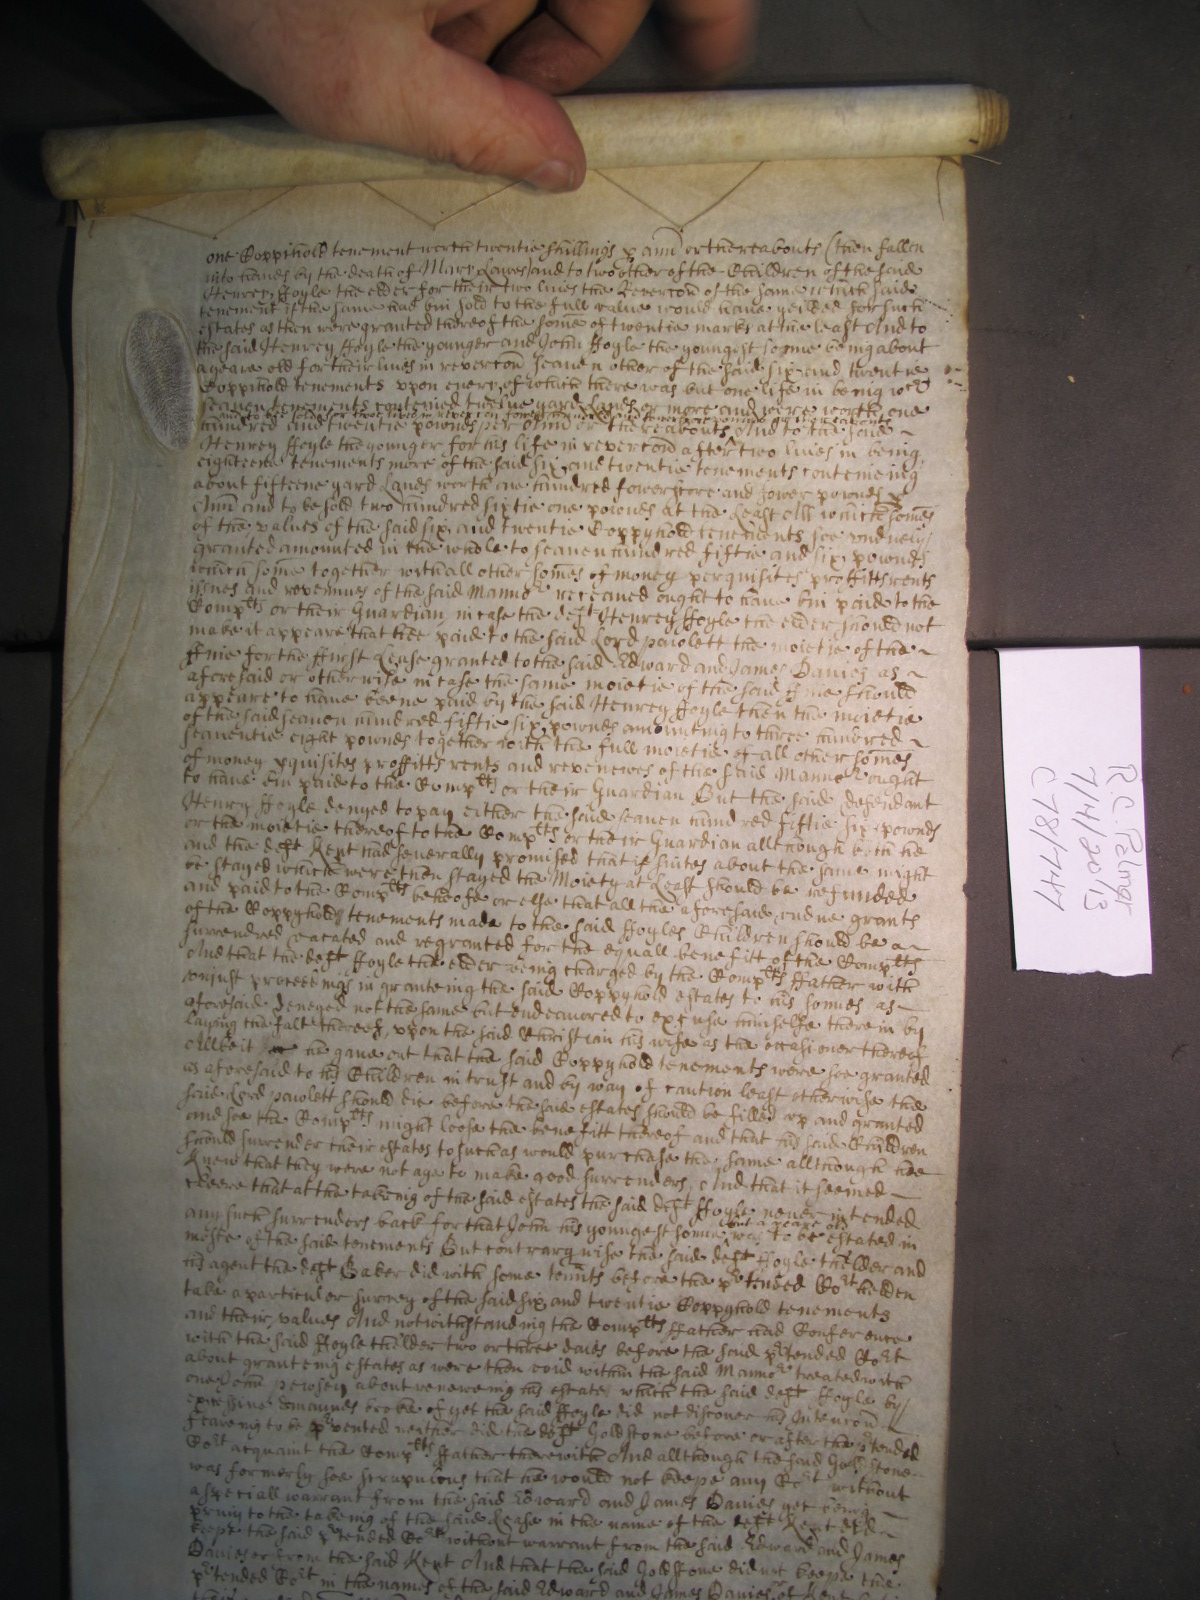 one Coppihold tenement worth twentie shillings p ann or thereabouts (then fallen
into hands by the death of Mary Lawes) and to two other of the Children of the said
Henrey Hoyle the elder for their two lives the Revercon of the same which said
tenement if the same had bin sold to the full value would have yeilded for such
estates as then were granted thereof the some of twentie marks at the least And to
the said Henrey Hoyle the younger and John Hoyle the youngest sonne being about
a yeare old for their lives in revercon seaven other of the said six and twentie
Coppihold tenements upon every of which there was but one life in being wch
seaven tenements conteined twelve yard Lands or more and were worth one
hundred and twentie pownds per Ann or thereabouts And to the said
Henrey Hoyle the younger for his life in revercon after two lives in being
eighteene tenements more of the said six and twentie tenements conteineing
about fifteene yard Lands worth one hundred fower score and fower pownds p
Ann and to be sold two hundred sixtie one pownds at the Least All which somes
of the values of the said six and twentie Coppyhold tenements soe unduely
granted amounted in the whole to seaven hundred fiftie and six pownds
which some together with all other somes of money perquisites proffitts rents
issues and revenues of the said Mannor received ought to have bin paid to the
Complts or their Guardian in case the deft Henrey Hoyle the elder should not
make it appeare that hee paid to the said Lord Pawlett the moietie of the
ffine for the ffirst Lease granted to the said Edward and James Davies as
aforesaid or otherwise in case the same moietie of the said ffine should
appeare to have beene paid by the said Henrey Hoyle then the moietie
of the said seaven hundred fiftie six pownds amounting to three hundred
seaventie eight pownds together with the full moietie of all other somes
of money pquisites proffitts rents and revenewes of the said Mannor ought
to have bin paide to the Complts or their Guardian But the said defendant
Henry Hoyle denyed to pay either the said seaven hundred fiftie six pownds
or the moietie thereof to the Complts or their Guardian allthough both he
and the deft Kent had severally promised that if suites about the same might
be stayed which were then stayed the Moiety at Least should be refunded
and paid to the Complts behoofe or else that all the aforesaid undue grants
of the Coppyhold tenements made to the said Hoyles Children should be
surrendred vacated and regranted for the equall benefitt of the Complts
And that the deft Hoyle the elder being charged by the Complts ffather with
unjust proceedings in granteing the said Coppyhold estates to his sonnes as
aforesaid denyed not the same but endeavored to excuse himselfe therein by
laying the falt thereof upon the said Christian his wife as the occasioner thereof
Albeit he gave out that the said Coppyhold tenements were soe granted
as aforesaid to his Children in trust and by way of caution least otherwise the
said Lord Pawlett should die before the said estates should be filled up and granted
and soe the Complts might loose the benefitt thereof and that his said Children
should surrender their estates to such as would purchase the same allthough hee
knew that they were not age to make good surrenders And that it seemed
cleere that at the takeing of the said estates the said deft Hoyle never intended
any such surrenders back for that John his youngest sonne but a yeare old was to be estated in
moste of the said tenements But contrarywise the said deft Hoyle thelder and
his agent the deft Baker did with some tennts before the ptended Cort holden
take a particuler survey of the said six and twentie Coppyhold tenements
and their values And notwithstanding the Complts ffather had Conference
with the said Hoyle thelder two or three daies before the said ptended Cort
about granteing estates as were then void within the said Mannor treated with
one John about reneweing his estate which the said deft Hoyle by
excessive demaunds broke of yet the said Hoyle did not discover his intencon
feareing to be pvented neither did the deft Goldstone before or after the ptended
Cort acquaint the Complts ffather therewith And allthough the said Goldstone
was formerly soe scrupulous that he would not keepe any Cort without
a speciall warrant from the said Edward and James Davies yet being
privy to the takeing of the said Lease in the name of the deft Kent did
keepe the said ptended Cort without warrant from the said Edward and James
Davies or from the said Kent And that the said Goldstone did not keepe the
ptended Cort in the names of the said Edward and James Davies or Kent
R.C. Palmer
7/4/2013
C78/747